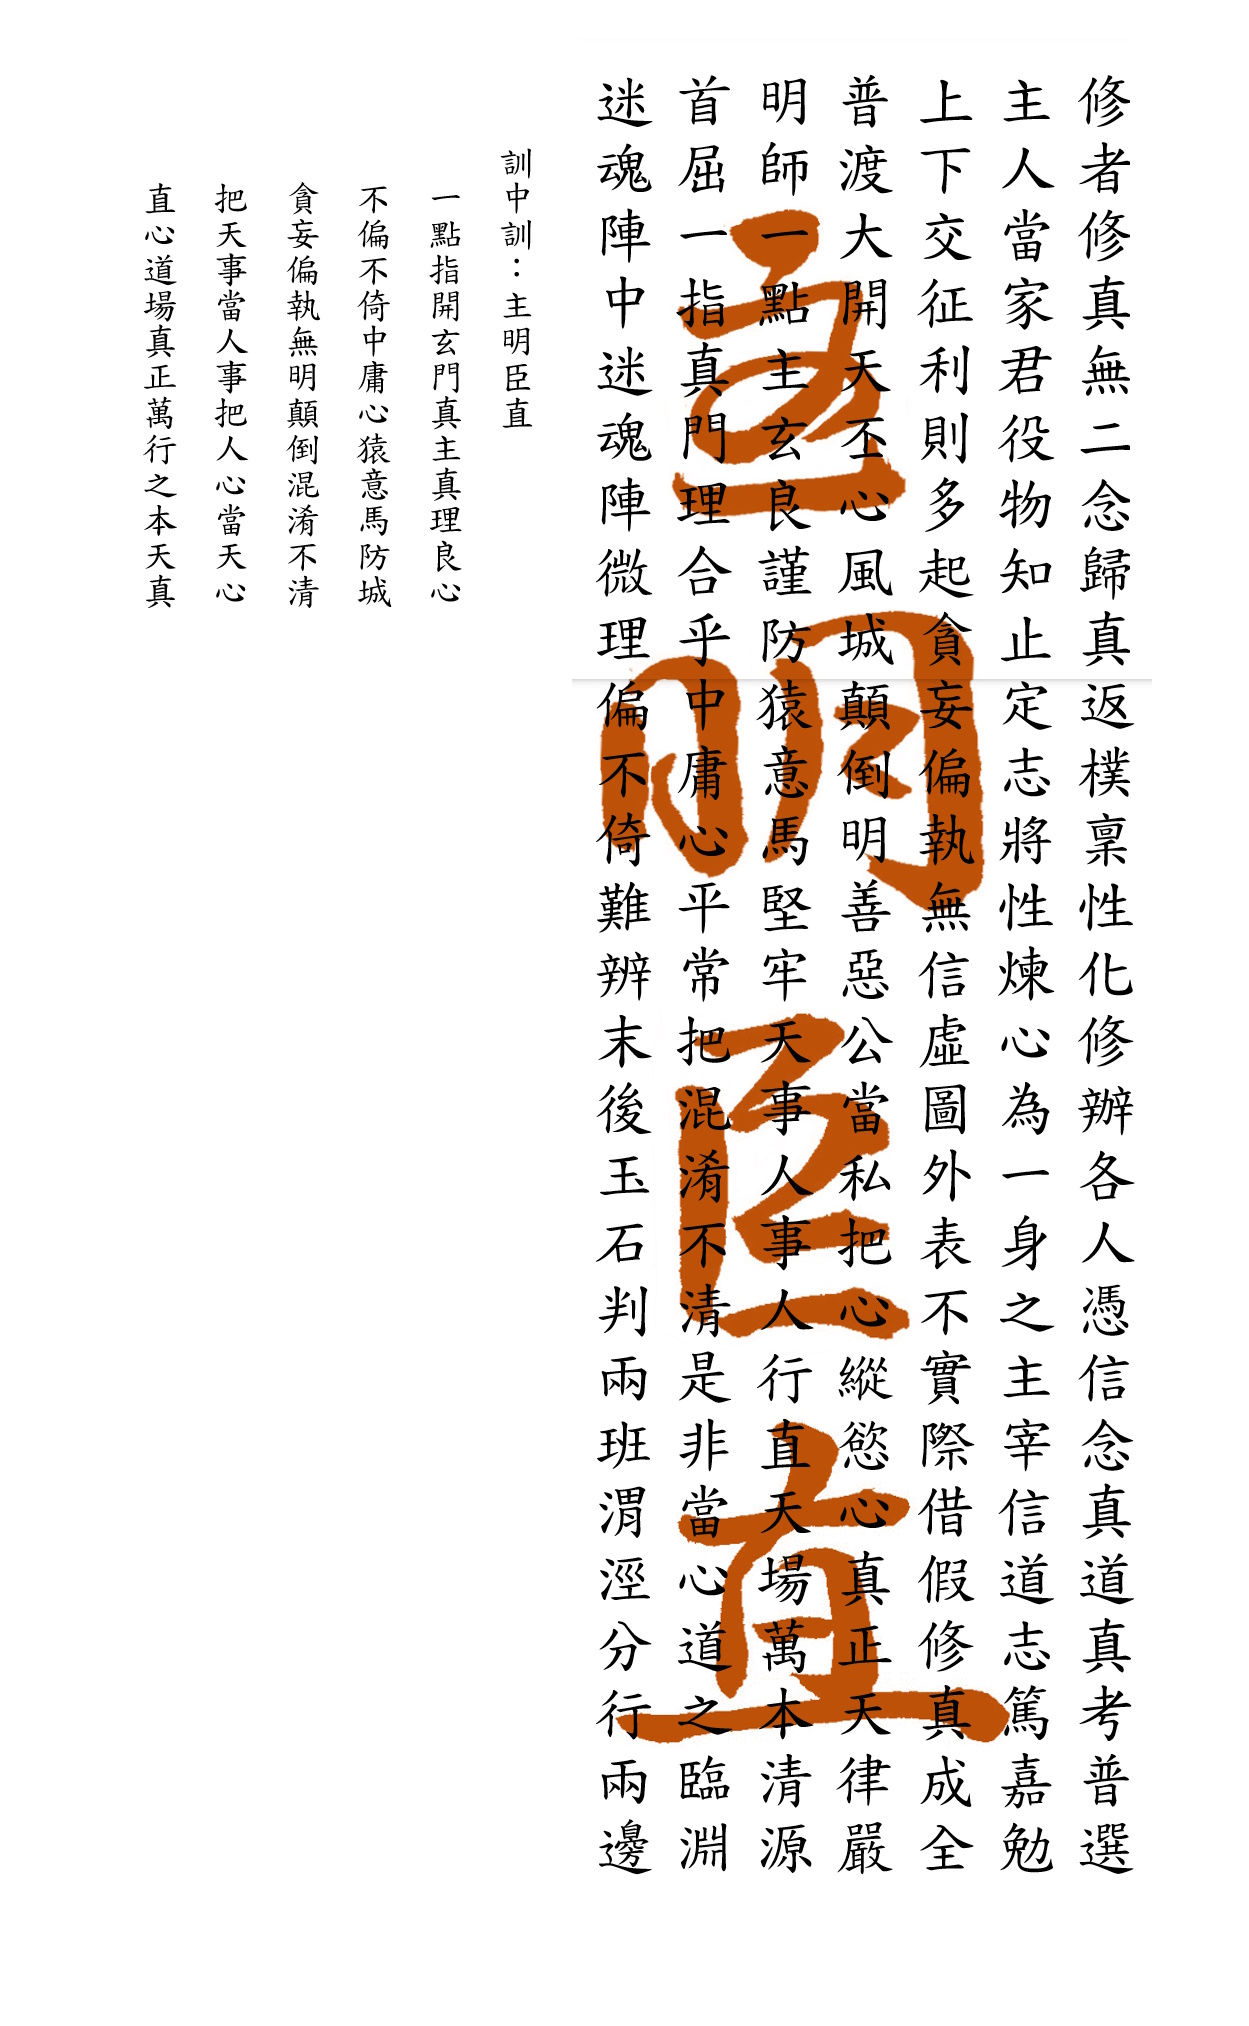 修者修真無二念歸真返樸稟性化修辦各人憑信念真道真考普選
主人當家君役物知止定志將性煉心為一身之主宰信道志篤嘉勉
上下交征利則多起貪妄偏執無信虛圖外表不實際借假修真成全
普渡大開天丕心風城顛倒明善惡公當私把心縱慾心真正天律嚴
明師一點主玄良謹防猿意馬堅牢天事人事人行直天場萬本清源
首屈一指真門理合乎中庸心平常把混淆不清是非當心道之臨淵
迷魂陣中迷魂陣微理偏不倚難辨末後玉石判兩班渭涇分行兩邊
主明臣直
訓中訓：主明臣直
一點指開玄門真主真理良心
不偏不倚中庸心猿意馬防城
貪妄偏執無明顛倒混淆不清
把天事當人事把人心當天心
直心道場真正萬行之本天真